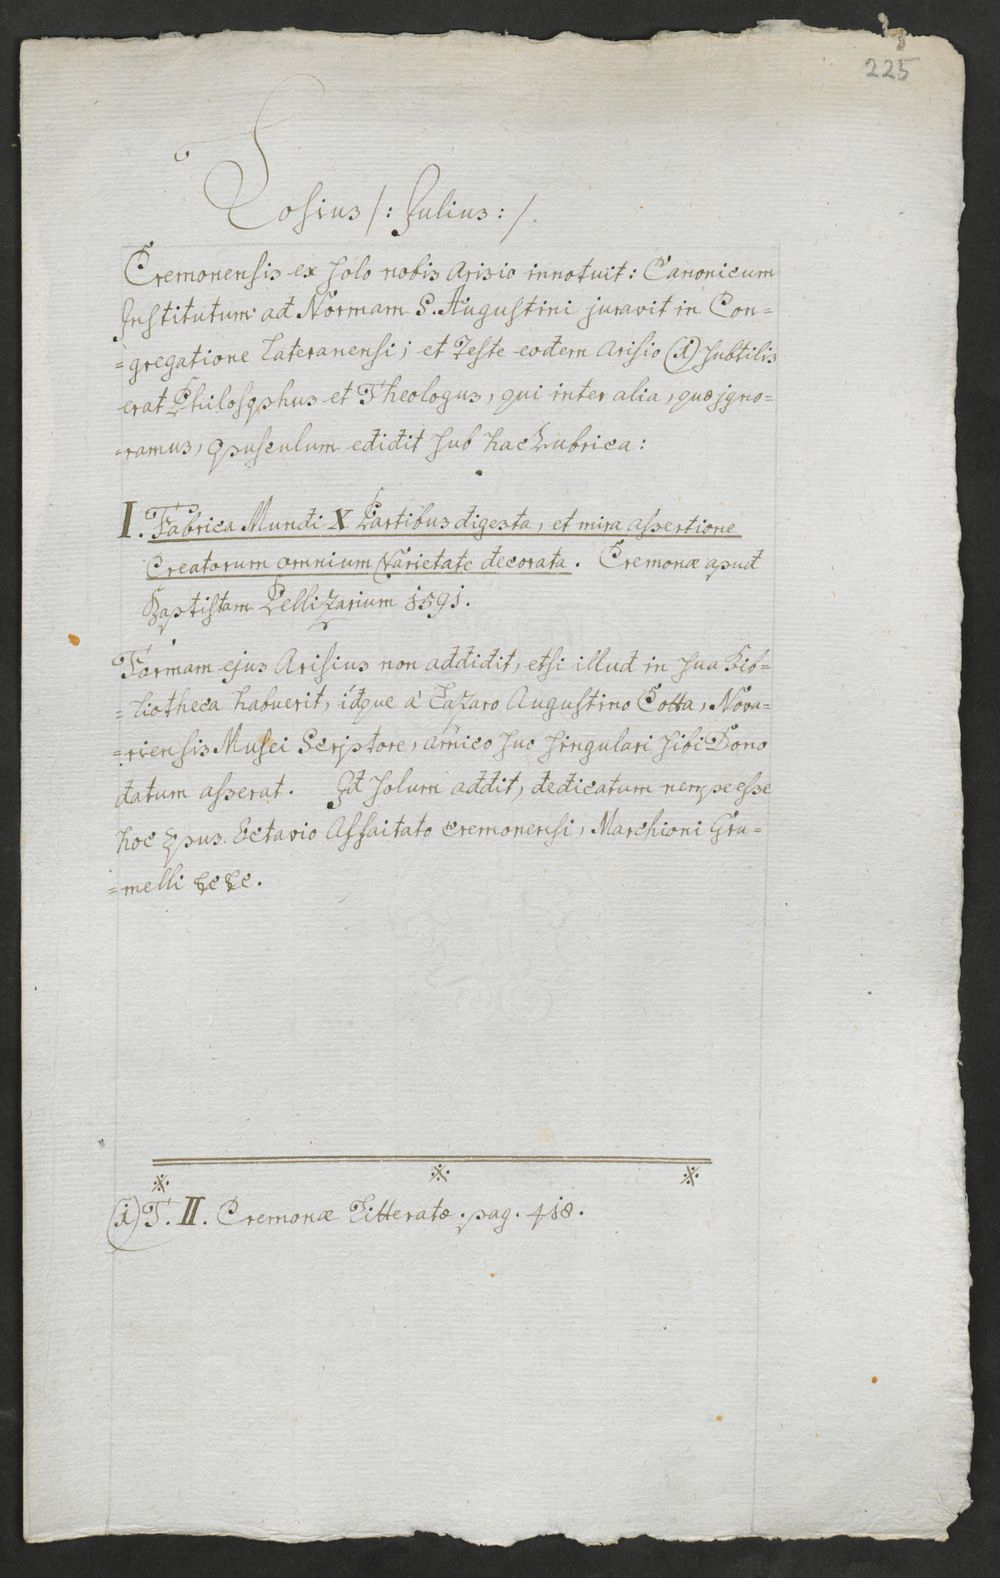 225
Tosius /: Julius: /
Cremonensis ex solo nobis Arisio innotuit: Canonicum
Institutum ad Normam S. Augustini juravit in Con=
=gregatione Lateranensi; et Teste eodem Arisio (1) subtilis
erat Philosophus et Theologus, qui inter alia, quæ igno=
=ramus, opusculum edidit sub hac Rubrica:
I. Fabrica Mundi X Partibus digesta, et mira assertione
Creatorum omnium Varietate decorata. Cremonæ apud
Baptistam Pellizarium 1591.
Formam ejus Arisius non addidit, etsi illud in sua Bib=
=liotheca habuerit, idque à Lazaro Augustino Cotta, Nova=
=riensis Musei Scriptore, amico suo singulari sibi Dono
datum asserat. Id solum addit, dedicatum nempe esse
hoc Opus Octavio Affaitato Cremonensi, Marchioni Gru=
=melli &c &c.
(1) T. II. Cremonæ Litteratæ. pag. 418.